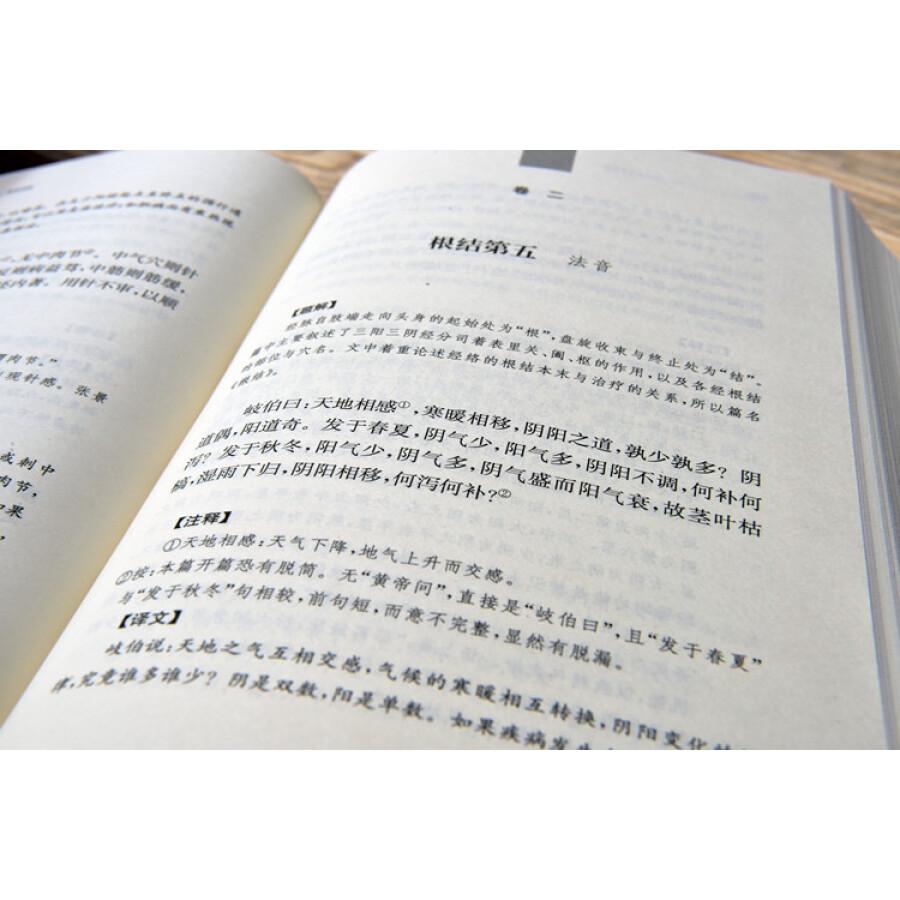 无中肉节。中气穴则针
反则病益笃，中筋则筋缓，
还内著。用针不审，以顺
肉节。”
现针感。张景
或刺中
肉节，
如果
卷二
根结第五 法音
【题解】
经脉自肢端走向头身的起始处为“根”，盘旋收束与终止处为“结”。
篇中主要叙述了三阳三阴经分司着表里关、阖、枢的作用，以及各经根结
的部位与穴名。文中着重论述经络的根结本末与治疗的关系，所以篇名
《根结》。
岐伯曰：天地相感①，寒暖相移，阴阳之道，孰少孰多？阴
道偶，阳道奇。发于春夏，阴气少，阳气多，阴阳不调，何补何
泻？发于秋冬，阳气少，阴气多，阴气盛而阳气衰，故茎叶枯
槁，湿雨下归，阴阳相移，何泻何补？②
【注释】
①天地相感：天气下降，地气上升而交感。
②按：本篇开篇恐有脱简。无“黄帝问”，直接是“岐伯曰”，且“发于春夏”
与“发于秋冬”句相较，前句短，而意不完整，显然有脱漏。
【译文】
岐伯说：天地之气互相交感，气候的寒暖相互转换，阴阳变化
律，究竟谁多谁少？阴是双数，阳是单数。如果疾病发生